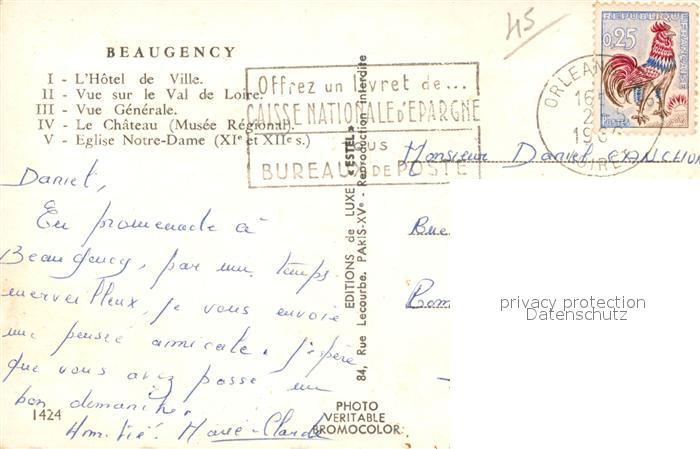 45
REPUBLIQUE FRANÇAISE
0,25
POSTES
BEAUGENCY
I - L'Hôtel de Ville.
II - Vue sur le Val de Loire.
III - Vue Générale.
IV - Le Château (Musée Régional).
V - Eglise Notre-Dame (XIe et XIIe s.)
Offrez un livret de...
CAISSE NATIONALE d'EPARGNE
BUREAU de POSTE
ORLEANS
LOIRET
Monsieur Daniel
Daniel,
En promenade à
Beaugency, par un temps
merveilleux, je vous envoie
une pensée amicale. J'espère
que vous avez passé un
bon dimanche.
Amitié. Marie-Claude
1424
EDITIONS de LUXE "ESTEL"
84, Rue Lecourbe. PARIS-XVe - Reproduction interdite
PHOTO
VERITABLE
BROMOCOLOR
privacy protection
Datenschutz